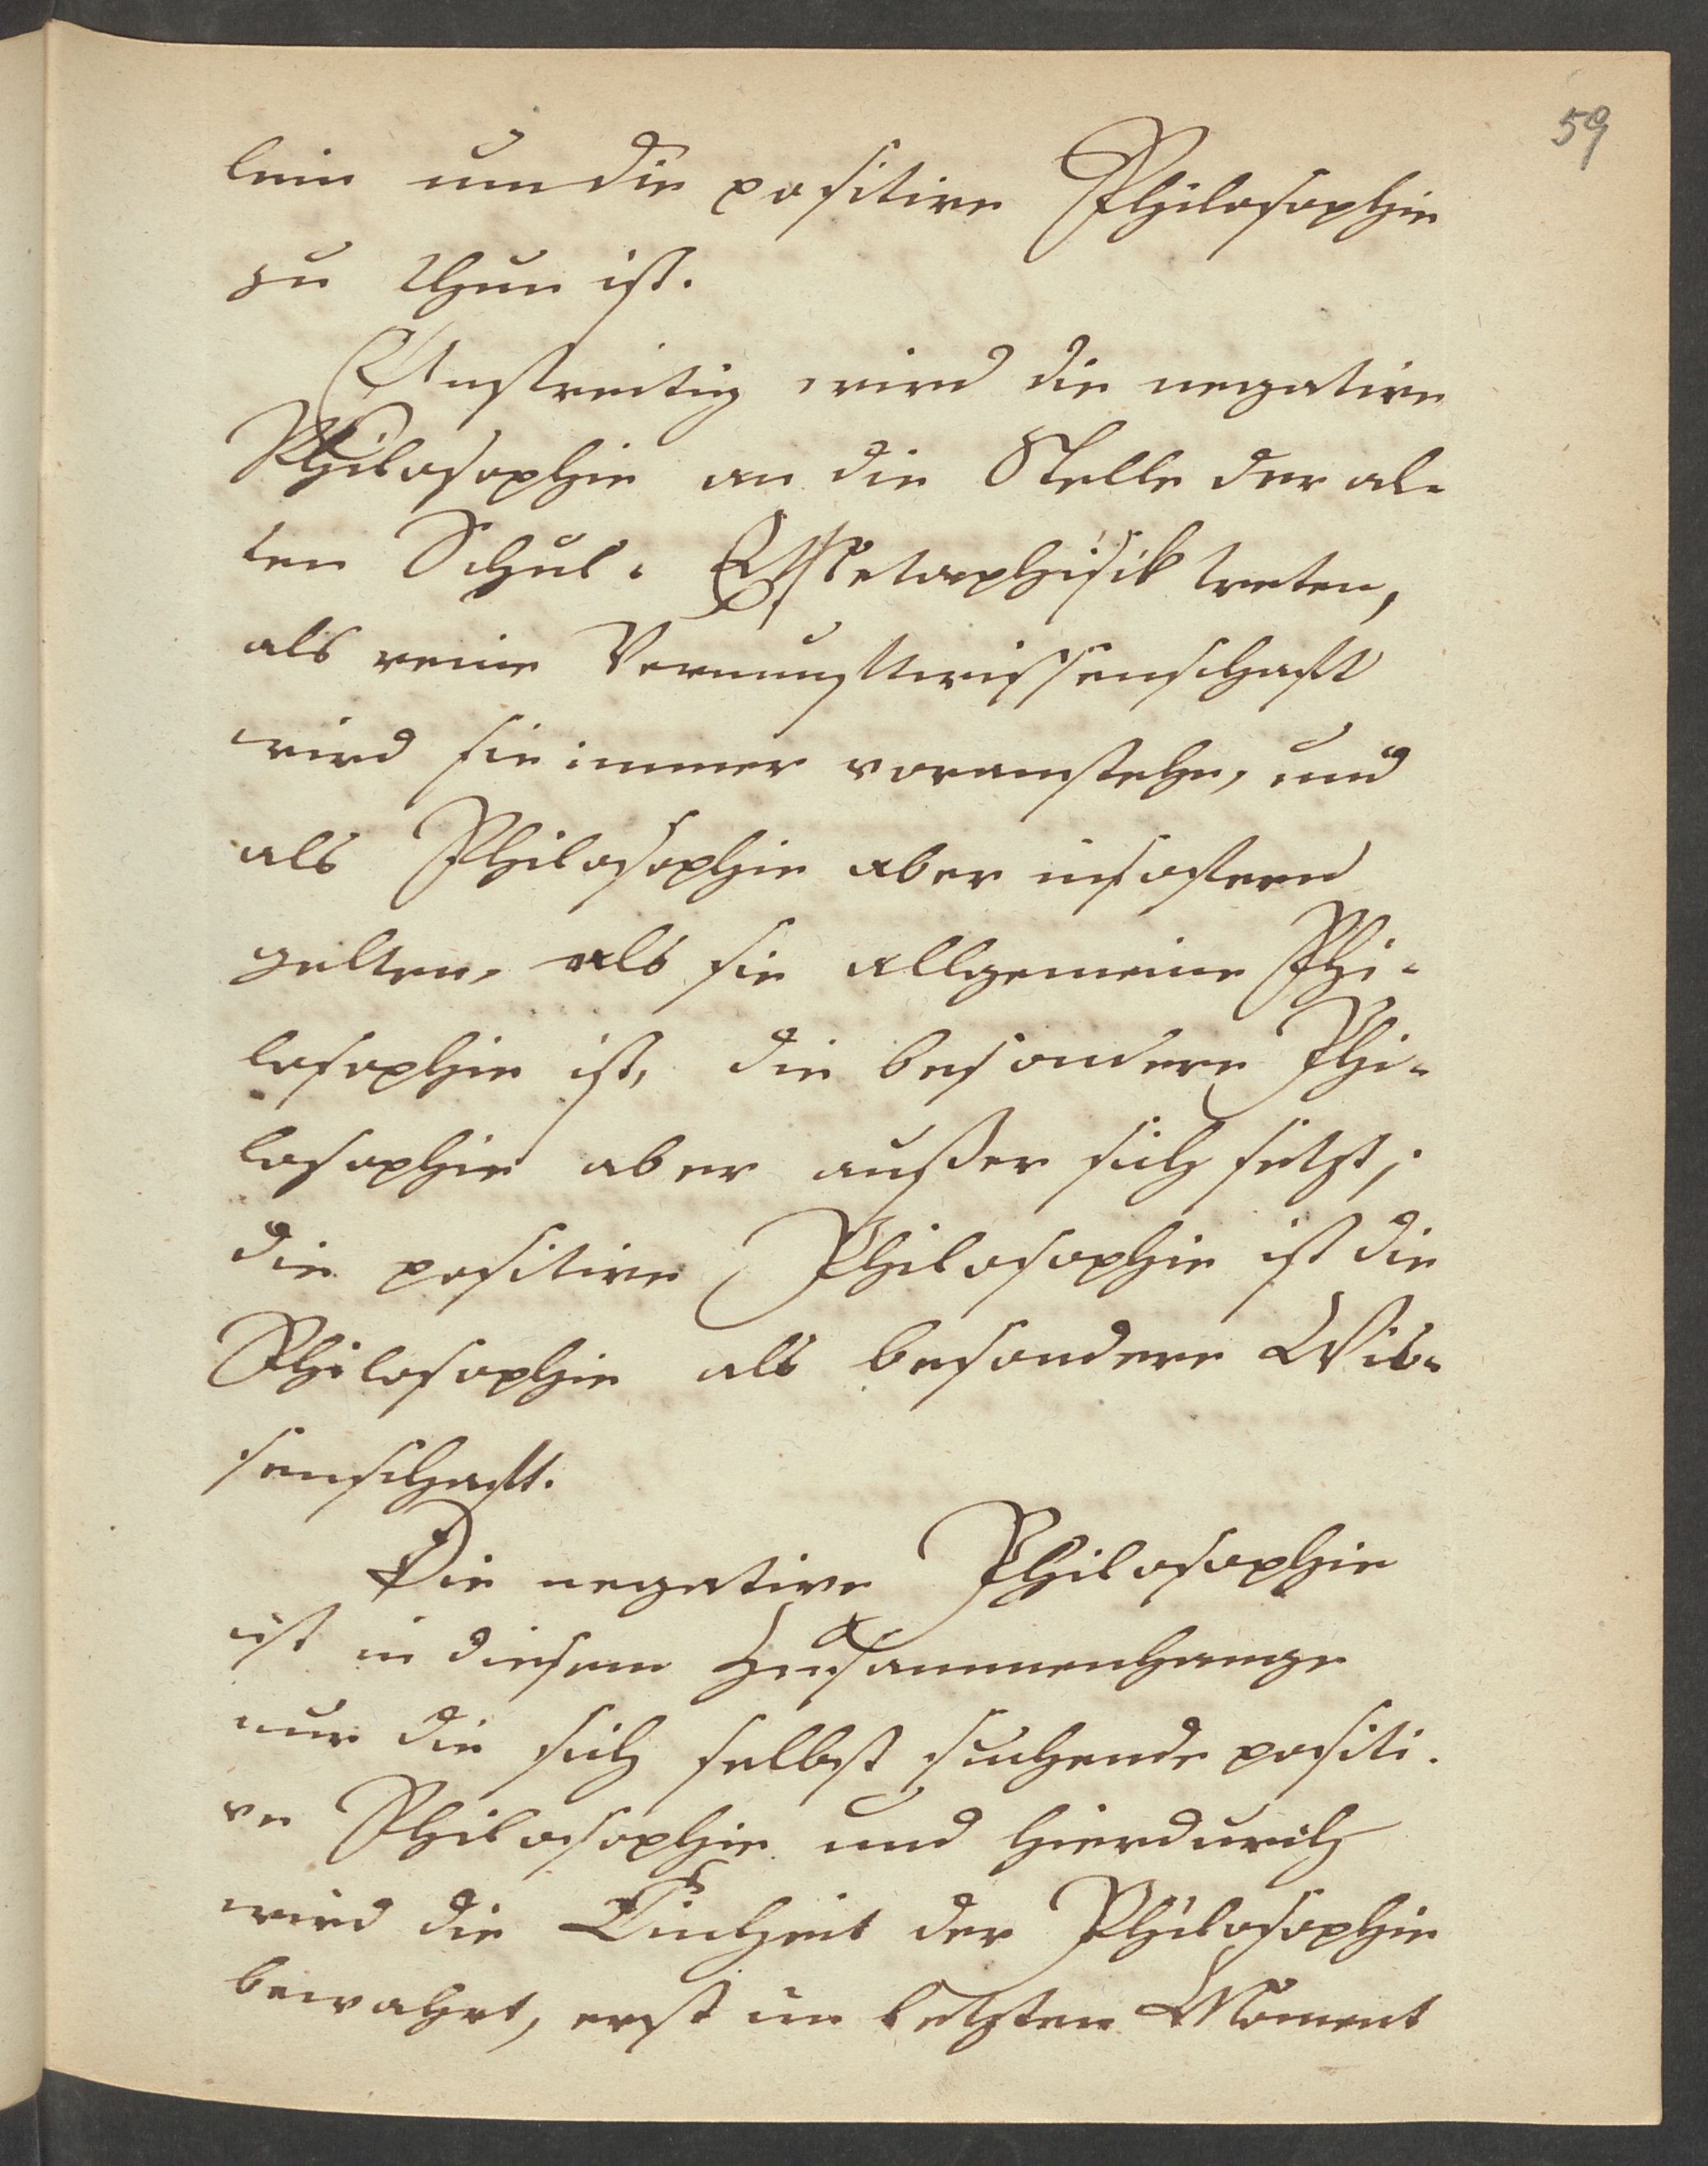 59
lein um die positive Philosophie
zu thun ist.
Unstreitig wird die negative
Philosophie an die Stelle der al-
ten Schul-Metaphisik treten,
als reine Vernunftwissenschaft
wird sie immer voranstehn, und
als Philosophie aber insofern
gelten, als sie allgemeine Phi-
losophie ist, die besondere Phi-
losophie aber außer sich setzt;
die positive Philosophie ist die
Philosophie als besondere Wis-
senschaft.
Die negative Philosophie
ist in diesem Zusammenhange
nur die sich selbst suchende positi-
ve Philosophie und hierdurch
wird die Einheit der Philosophie
bewahrt, erst im letzten Moment